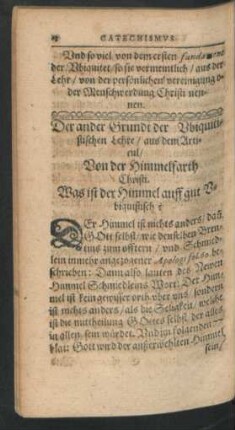 CATECHISMVS.
Vnd so viel von dem ersten fundament
der Vbiquitet / so sie vermeintlich / aus der
Lehr / von der persönlichen vereinigung
der Menschwerdung Christi nen-
nen.
Der ander Grundt der Vbiqui-
stischen Lehre / aus dem Arti-
cul /
Von der Himmelfarth
Christi.
Was ist der Himmel auff gut V-
biquistisch?
DEr Himmel ist nichts anders / dañ
GOtt selbst / wie denselben Bren-
tius zum offtern / vnd Schmied-
lein in mehr angezogener Apologi fol.
schrieben: Dann also lauten des Newen
Himmel Schmiedleins Wort: Der Him-
mel ist kein gewisser orth sondern
ist nichts anders / als die Seligkeit / welche
ist die mittheilung GOttes selbst der alles
in allen sein würdet. Vnd im folgenden
blat: Gott wird der außerwehlten Himmel
sein /